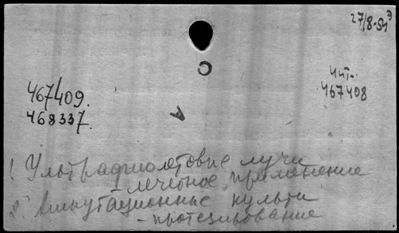 27/8-91 Э
467409.
468337.
чит.
467408
С
А
1. Ультрафиолетовые лучи
- лечебное применение
2. Ампутационные культи
- протезирование